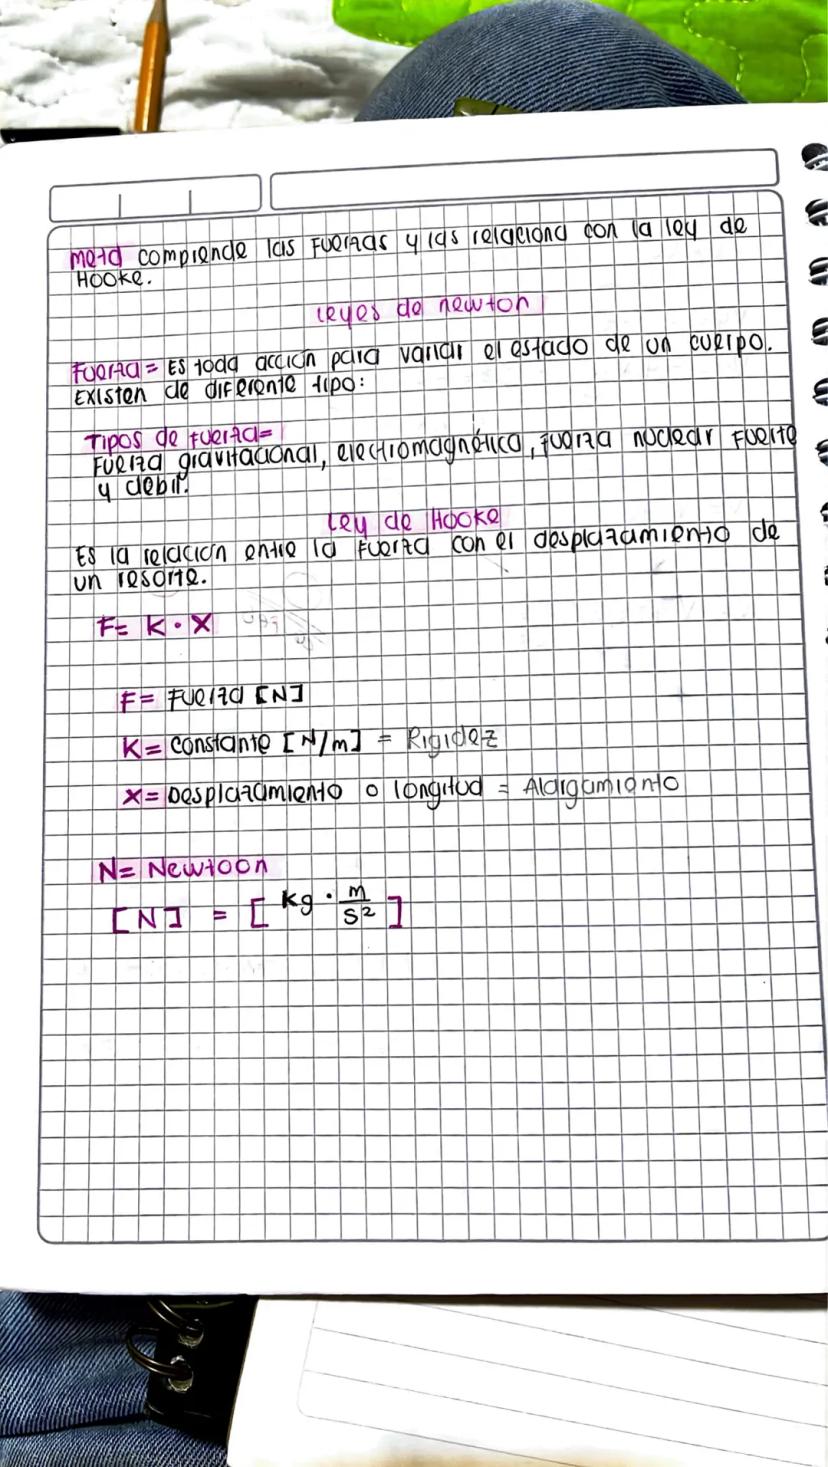 Meta comprende las Fuerzas y las relaciona con la ley de
Hooke.
Leyes de newton
Fuerza= Es toda acción para variar el estado de un cuerpo.
Existen de diferente tipo:
Tipos de fuerza=
Fuerza gravitacional, electromagnética, fuerza nuclear Fuerte
y debil.
Ley de Hooke
Es la relación entre la Fuerza con el desplazamiento de
un resorte.
F= K • X
F= Fuerza [N]
K= constante [N/m] = Rigidez
X= Desplazamiento o longitud = Alargamiento
N= Newtoon
[N] = [ kg · m/s² ]